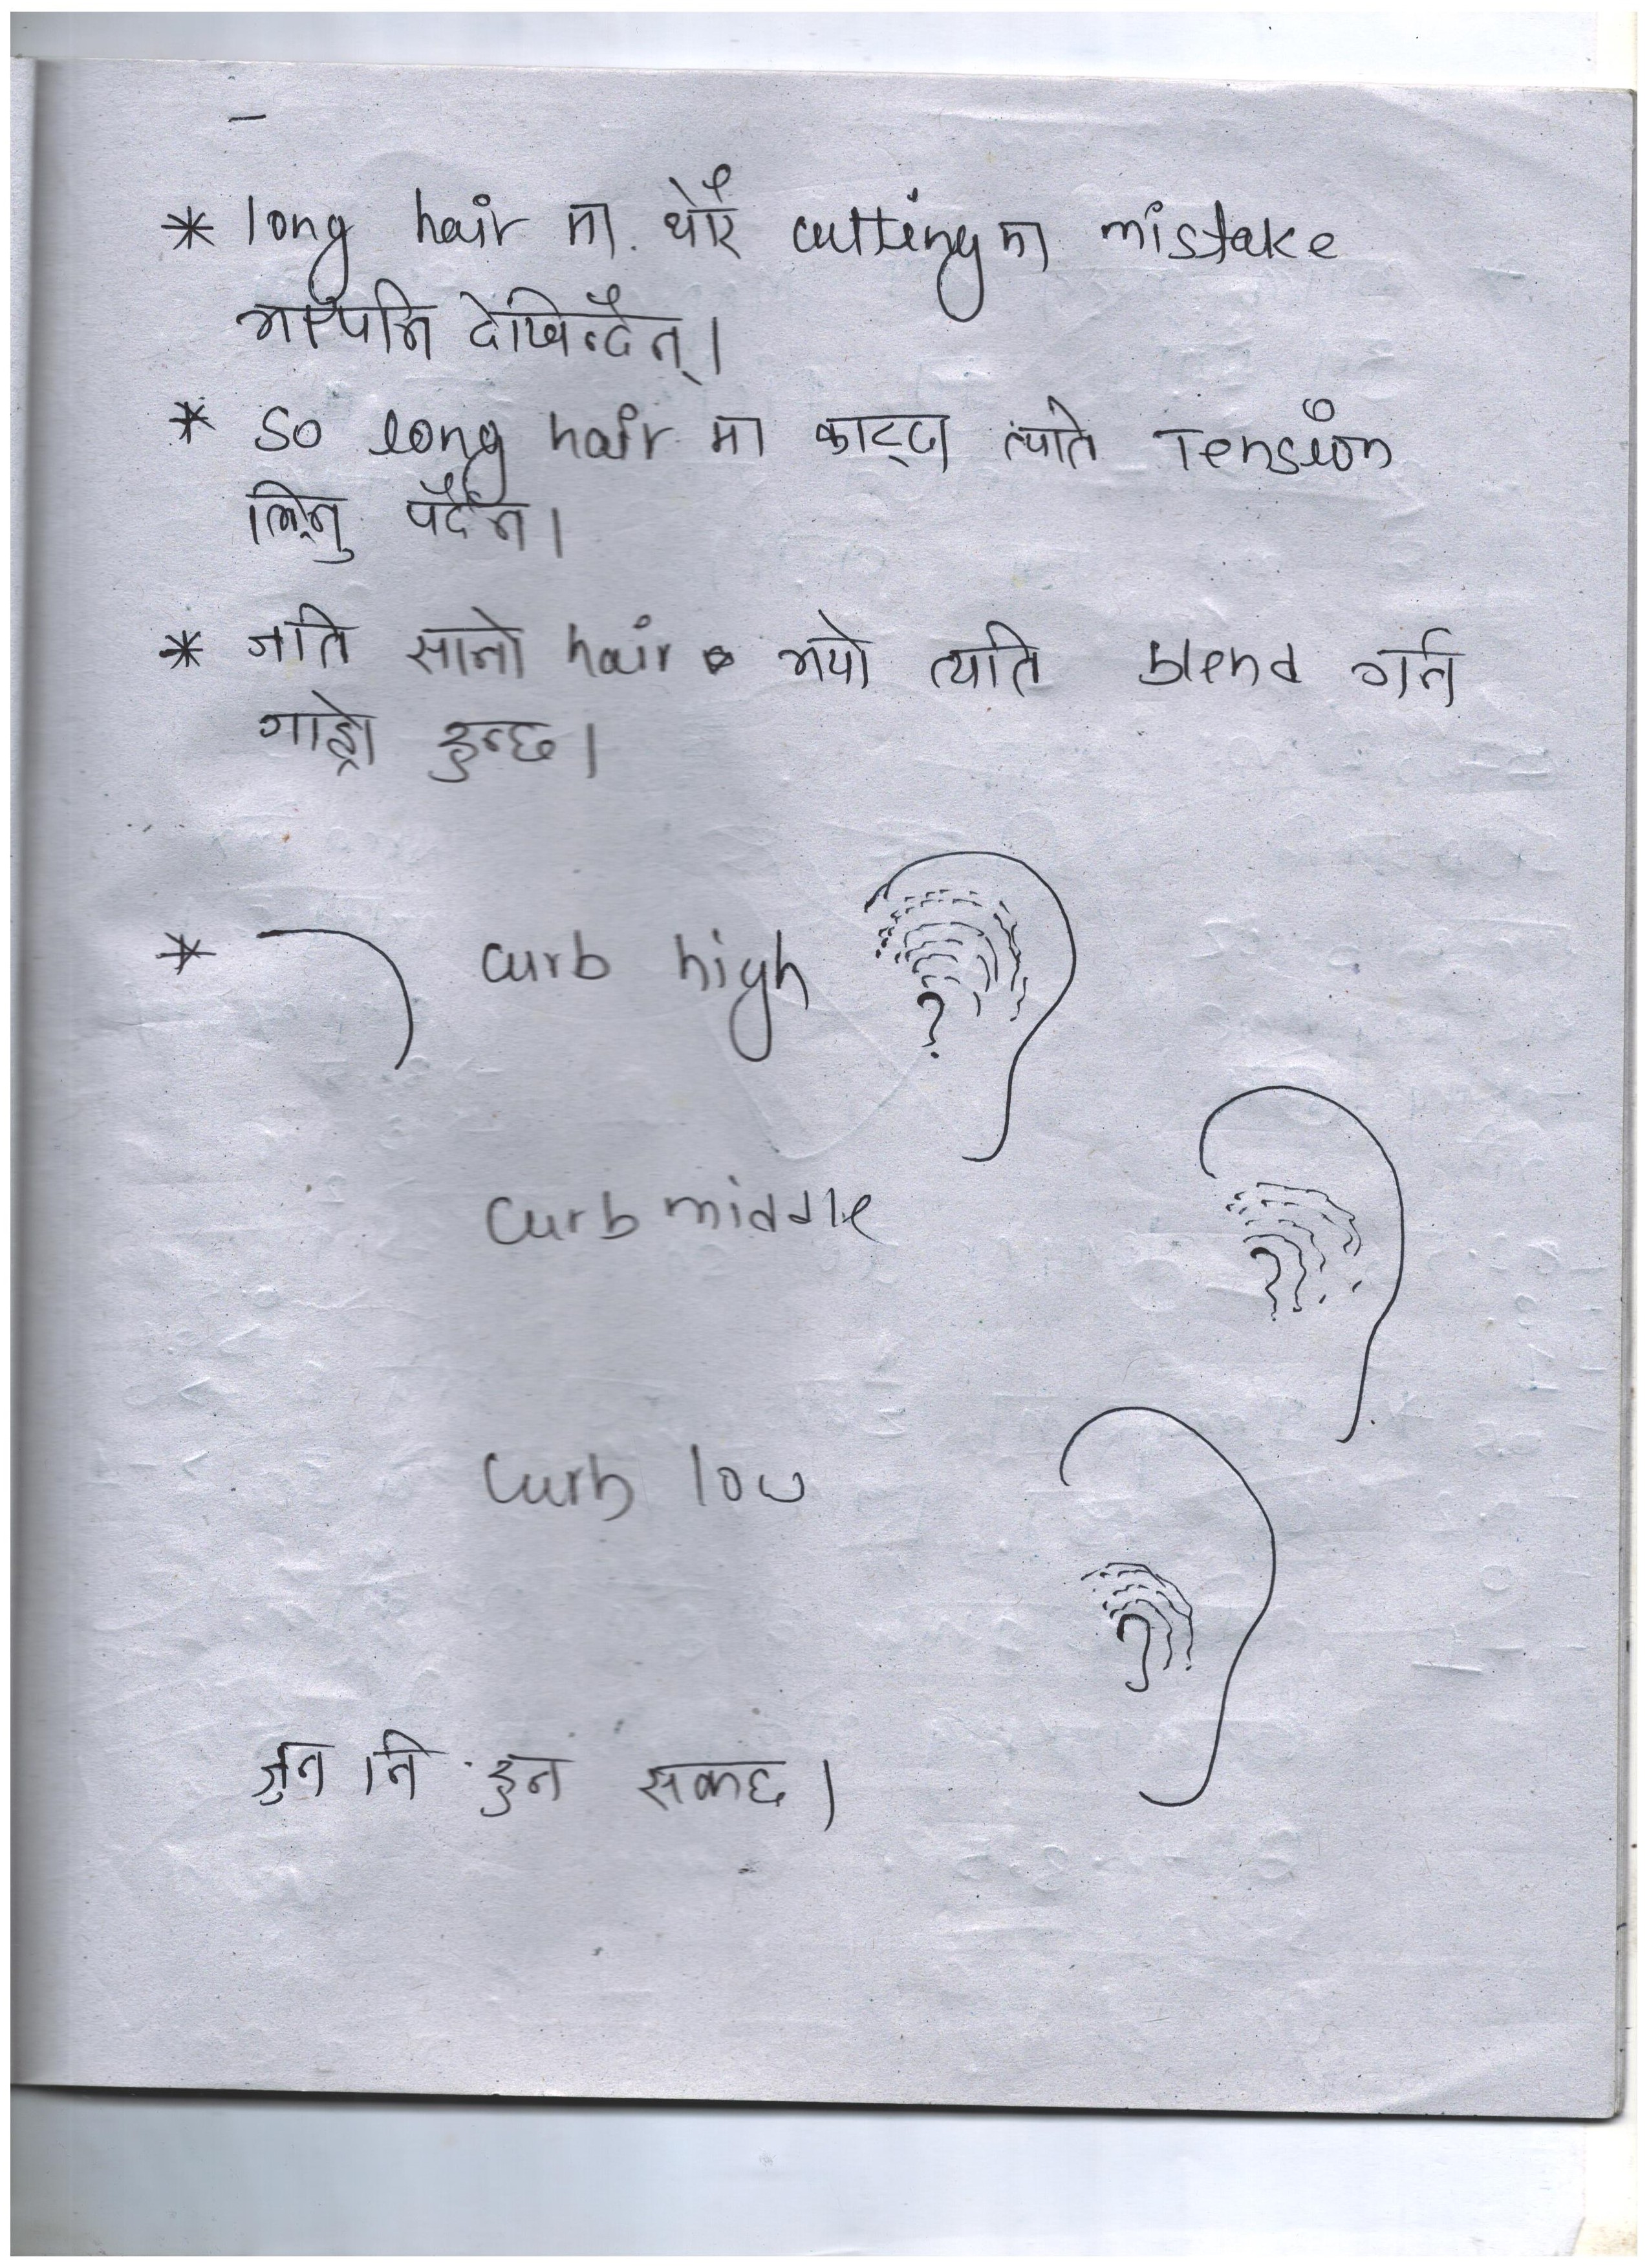 * long hair मा थोरै cutting मा mistake
भएपनि देखिन्दैन्।
* so long hair मा काट्दा त्यति Tension
लिनु पर्दैन।
* जति सानो hair भयो त्यति blend गर्न
गाह्रो हुन्छ।
* curb high
curb middle
curb low
जुन नि हुन सक्छ।